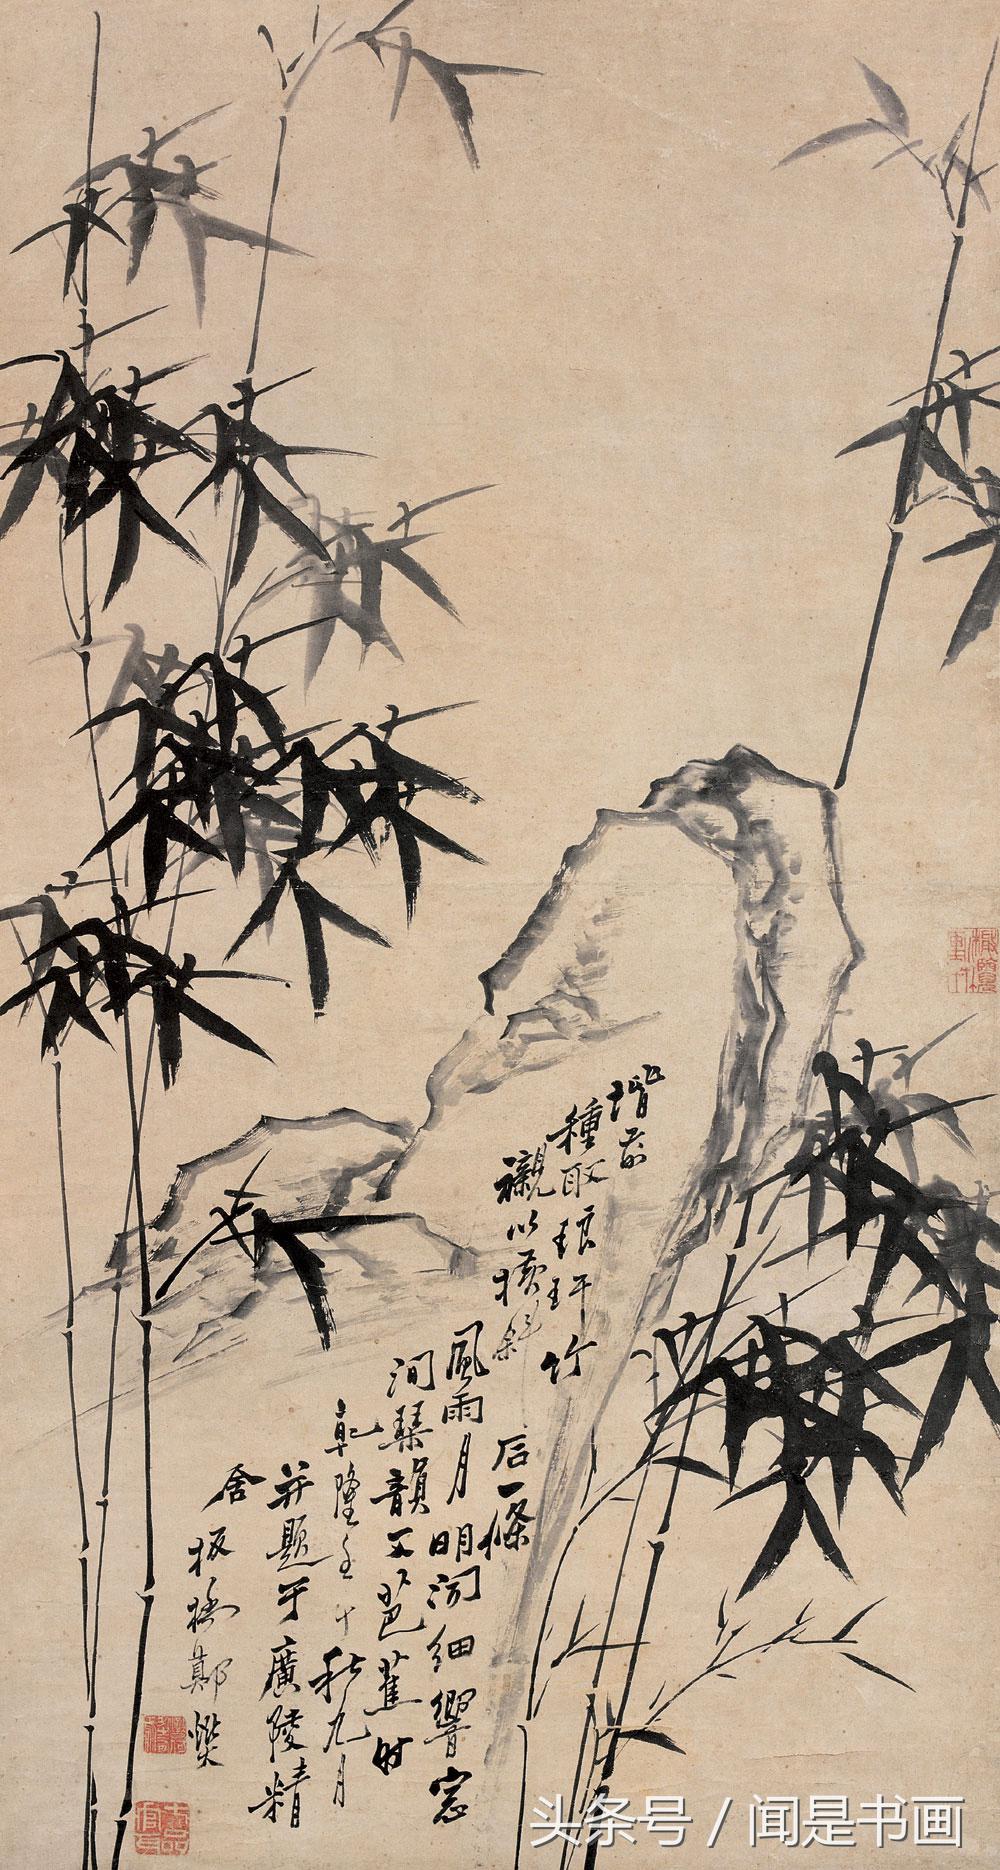 堦前
種取琅玕竹
襯以橫斜
后一條
風雨月明聞細響窓
間琴韻又芭蕉時
乾隆壬十秋九月
并題于廣陵精
舍板橋鄭燮
头条号 / 闻是书画